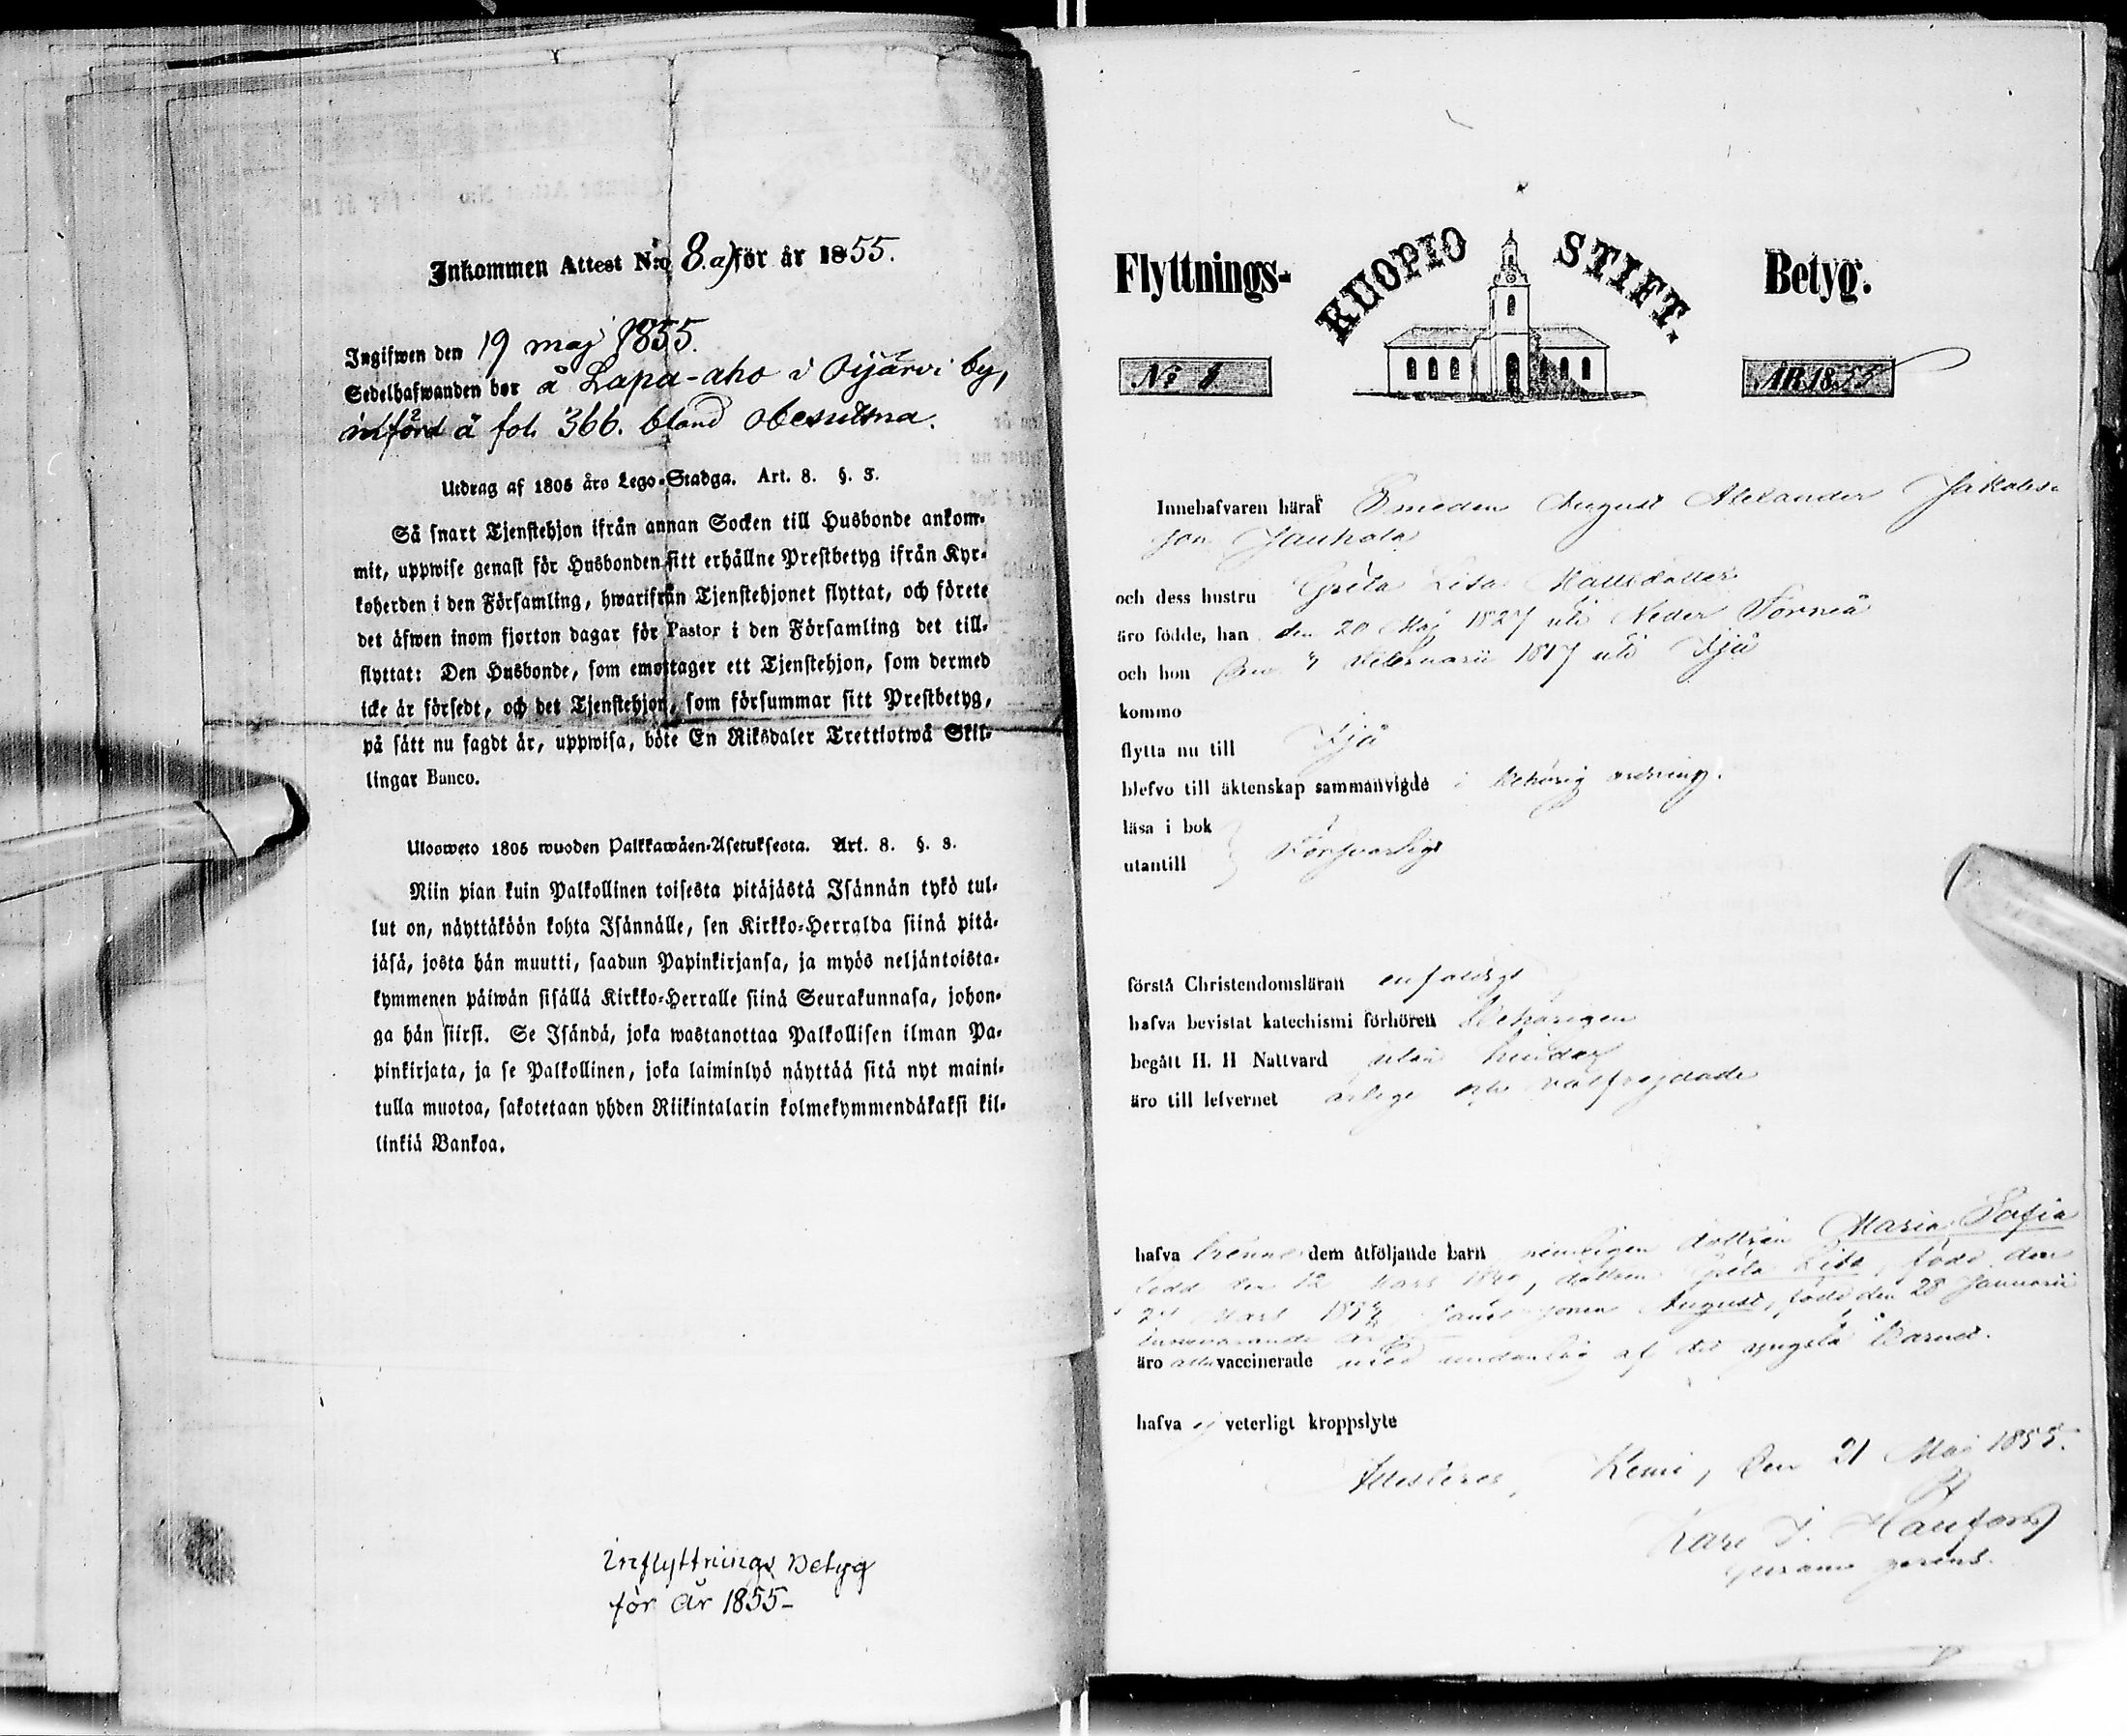 Inkommen Attest N:o 8.a) för år 1855.
Ingifwen den 19 maj 1855.
Sedelhafwanden bor å Lapa-aho i Oijärvi by,
införd å fol. 366. bland obesuttna.
Utdrag af 1805 års Lego-Stadga. Art. 8. §. 3.
Så snart Tjenstehjon ifrån annan Socken till Husbonde ankom-
mit, uppwise genast för Husbonden sitt erhållne Prestbetyg ifrån Kyr-
koherden i den Församling, hwarifrån Tjenstehjonet flyttat, och förete
det äfwen inom fjorton dagar för Pastor i den Församling det till-
flyttat: Den Husbonde, som emottager ett Tjenstehjon, som dermed
icke är försedt, och det Tjenstehjon, som försummar sitt Prestbetyg,
på sätt nu sagdt är, uppwisa, böte En Riksdaler Trettiotwå Skil-
lingar Banco.
Ulosweto 1805 wuoden Palkkawäen-Asetuksesta. Art. 8. §. 3.
Niin pian kuin Palkollinen toisesta pitäjästä Isännän tykö tul-
lut on, näyttäköön kohta Isännälle, sen Kirkko-Herralda siinä pitä-
jäsä, josta hän muutti, saadun Papinkirjansa, ja myös neljäntoista-
kymmenen päiwän sisällä Kirkko-Herralle siinä Seurakunnasa, johon-
ga hän siirsi. Se Isändä, joka wastanottaa Palkollisen ilman Pa-
pinkirjata, ja se Palkollinen, joka laiminlyö näyttää sitä nyt maini-
tulla muotoa, sakotetaan yhden Riikintalarin kolmekymmendäkaksi kil-
linkiä Bankoa.
Inflyttnings Betyg
för år 1855-
Flyttnings- KUOPIO STIFT. Betyg.
No 8 ÅR 1855
Innehafvaren häraf Smeden August Alexander Jakobs-
son Jauhola
och dess hustru Greta Lisa Mattsdotter
äro födde, han den 20 Maj 1827 uti Neder Torneå
och hon den 7 Februarii 1817 uti Ijå
kommo
flytta nu till Ijå
blefvo till äktenskap sammanvigde i behörig ordning.
läsa i bok
utantill } Försvarligt
förstå Christendomsläran enfaldigt
hafva bevistat katechismi förhören behörigen
begått H. H Nattvard utan hinder
äro till lefvernet ärlige och välfrejdade
hafva trenne dem åtföljande barn nemligen dottren Maria Sofia
född den 12 Mars, dottren Greta Lisa, född den
Mars samt sonen August, född den 28 Januarii
innevarande år
äro alla vaccinerade med undantag af det yngsta barnet.
hafva ej veterligt kroppslyte
Attesteras, Kemi, den 21 Maj 1855.
Karl J.